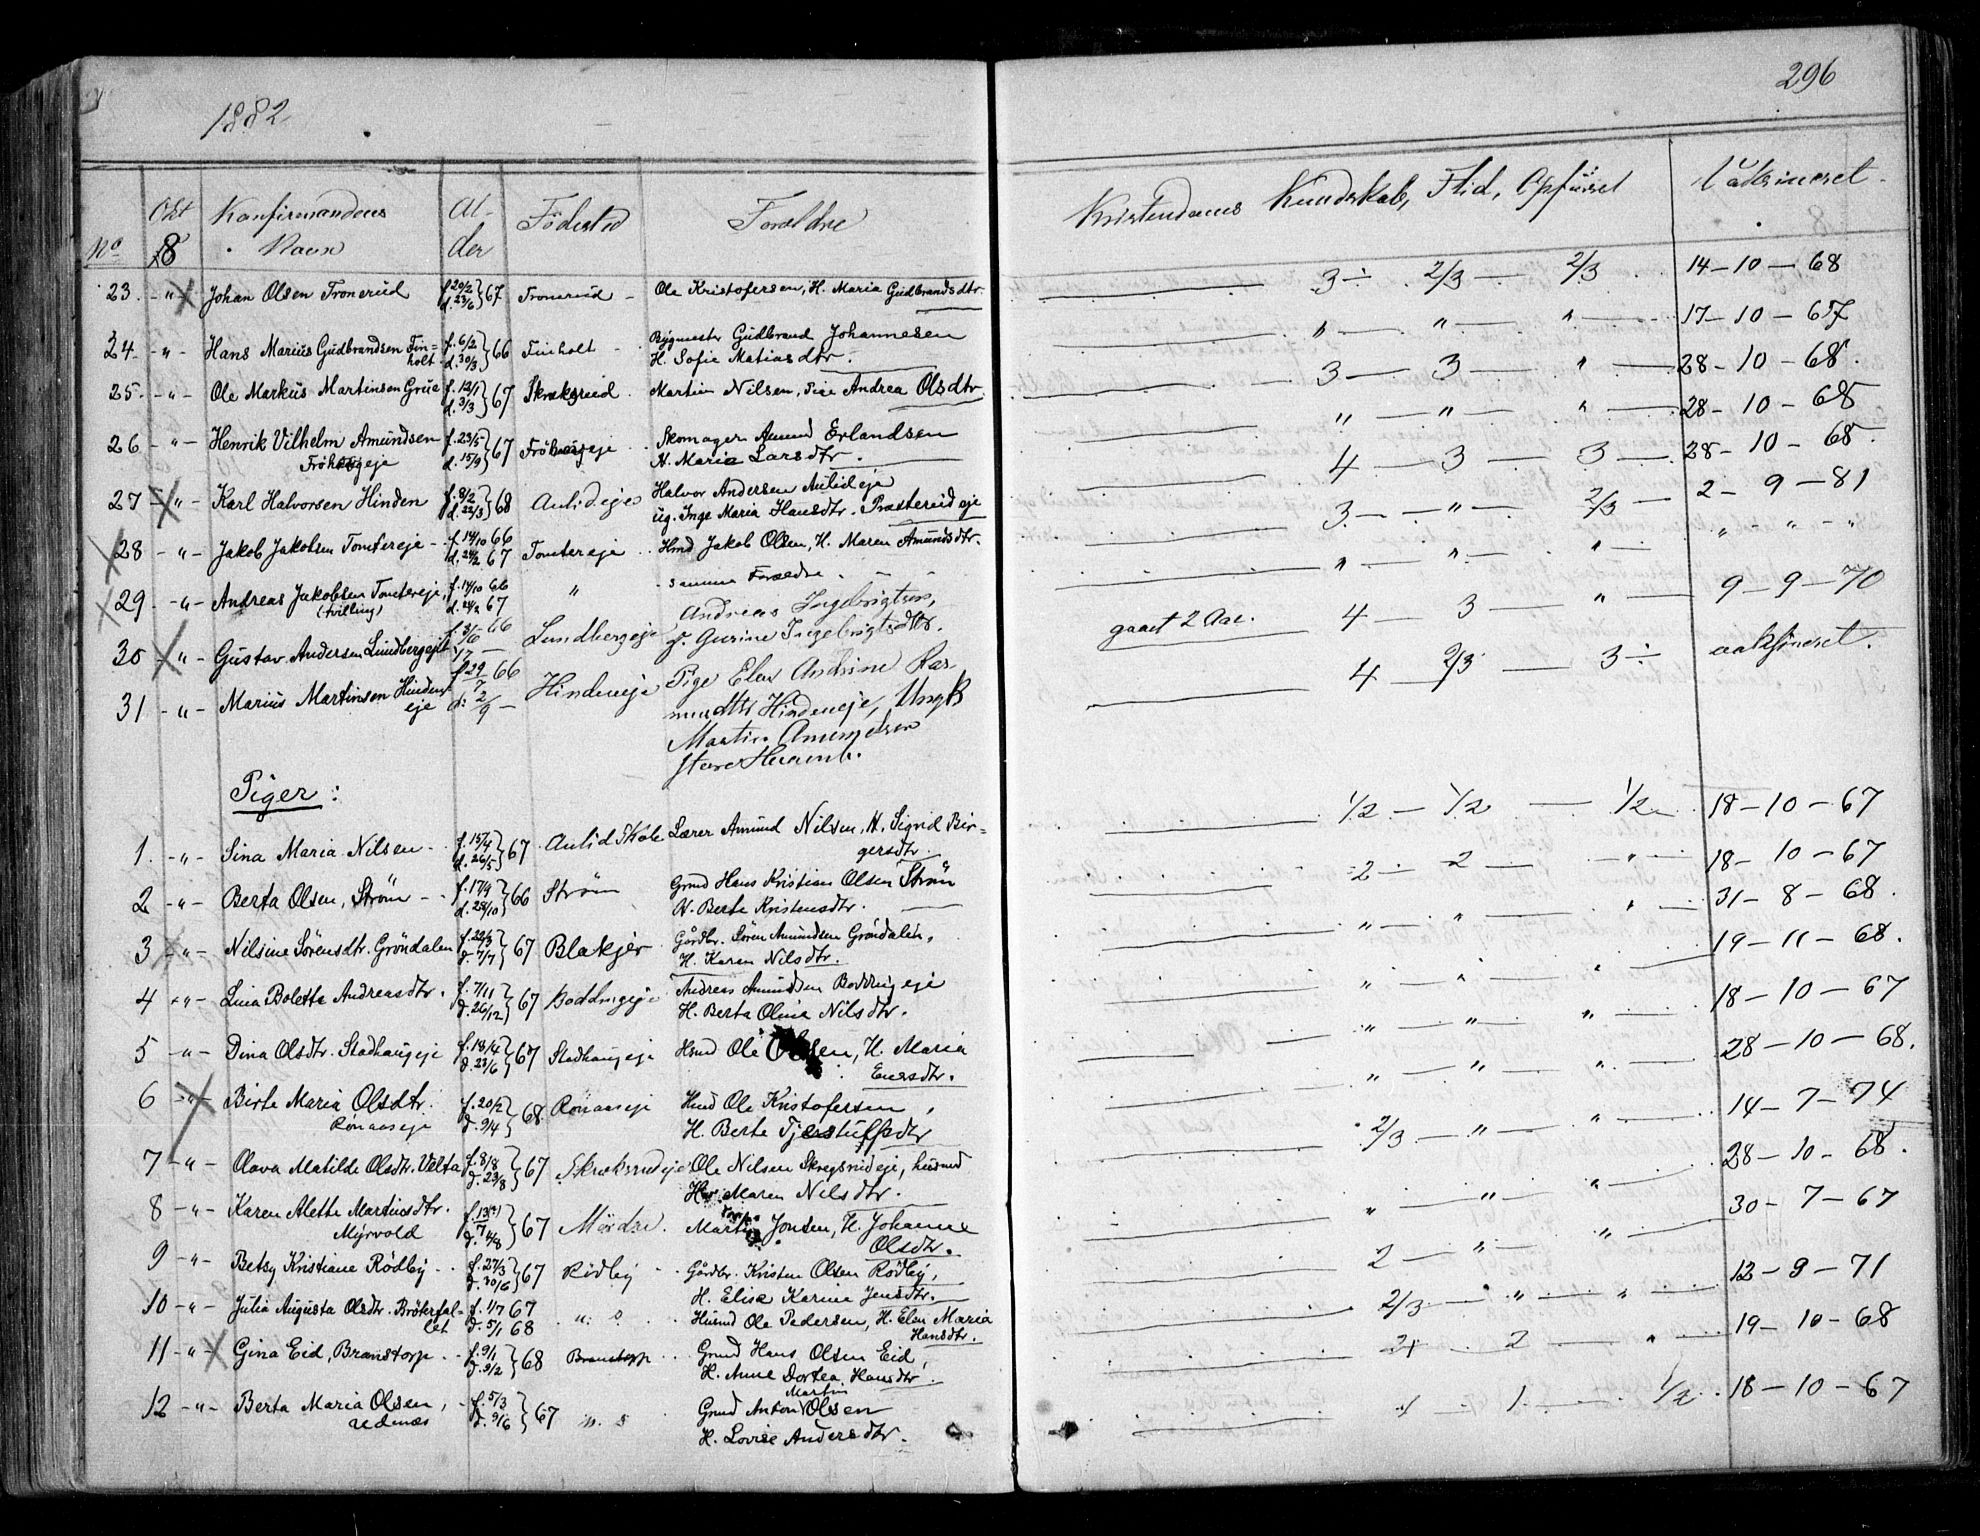 296
1882
No Okt 8 Konfirmandens Navn Al-der Födested Forældre Kristendoms Kundskab, Flid, Opførsel Vaksineret
23. -"- Johan Olsen Tronerud f. 20/2 d. 23/6 } 67 Tronerud - Ole Kristofersen, H. Maria Gudbrandsdtr. 3÷ 2/3 - 2/3 14-10-68
24. -"- Hans Marius Gudbrandsen Fin= f. 6/2 d. 30/3 } 66 Finholt Bygmester Gudbrand Johannesen " - " - " 17-10-67
holt H. Sofie Matiasdtr.
25. -"- Ole Markus Martinsen Grua f. 12/1 d. 3/3 } 67 Skraksrud Martin Nilsen, Pige Andrea Olsdtr. 3 - 3 - " 28-10-68.
26 -"- Henrik Vilhelm Amundsen f. 23/5 d. 15/9 } 67 Fröhaugeje Skomager Amund Erlandsen " - " - " 28-10-68
Fröhaugeje H. Maria Larsdtr.
27 -"- Karl Halvorsen Hinden f. 8/2 d. 22/3 } 68 Aulideje Halvor Andersen Aulideje 4 - 3 - 3 28-10-68.
ug. Inge Maria Hansdtr. Præsterudeje
28 -"- Jakob Jakobsen Tomtereje f. 14/10 66 d. 24/2 67 Tomtereje Hmd Jakob Olsen, H. Maren Amundsdtr. 3 - " - 2/3 2-9-81
29. -"- Andreas Jakobsen Tomtereje, f. 14/10 66 d. 24/2 67 " samme Forældre. " - " - " " - " - "
(tvilling)
30 -"- Gustav Andersen Lundbergeje 66 Lundbergeje Andreas Ingebrigtsen, gaaet 2 Aar. 4 - 3 - " 9-9-70
g. Gurine Ingebrigtsdtr.
31 -"- Marius Martinsen Hinden f 29/7 66 d: 2/9 - Hindeneje Pige Elen Andrine Ras 4 2/3 - 3÷ vaksineret.
eje mundttr Hindeneje, Ungk
Martin Amundsen
Piger:
1. -"- Sina Maria Nilsen f. 15/4 d. 26/5 } 67 Aulid Skole Lærer Amund Nilsen, H. Sigrid Bir= 1/2 - 1/2 - 1/2 18-10-67
gersdtr.
2 -"- Berta Olsen, Ström f. 17/9 d. 28/10 } 66 Ström Grmd Hans Kristian Olsen Ström 2 - 2 - " 18-10-67
H. Berte Kristensdtr.
3 -"- Nilsine Sörensdtr. Gröndalen f. 22/3 d. 7/7 } 67 Blakjer Gårdbr. Sören Amundsen Gröndalen, " - " - " 31-8-68.
H. Karen Nilsdtr.
4 -"- Lina Bolette Andreasdtr. f. 7/11 d. 26/12 } 67 Boddingeje Andreas Amundsen Boddingeje " - " - " 19-11-68.
H. Berta Olina Nilsdtr.
5 -"- Dina Olsdtr. Stadhaugeje f. 18/4 d. 23/6 } 67 Stadhaugeje Hmd Ole Olsen, H. Maria " - " - " 18-10-67
Enersdtr.
6 -"- Birte Maria Olsdtr. f. 20/2 d. 9/4 } 68 Rönaaseje Hmd Ole Kristofersen, " - " - " 28-10-68.
Rönaaseje H. Berte Tjerstulfsdtr
7 -"- Olava Matilde Olsdtr. Velta f. 8/8 d. 23/8 } 67 Skraksrudeje Ole Nilsen Skregsrudeje, husmd 2/3 - " - " 14-7-74
Hus. Maren Nilsdtr.
8 -"- Karen Alette Martinsdtr. 67 Mördre. Martin Jonsen, H. Johanne " - " - " 28-10-68.
Myrvold Olsdtr.
9 -"- Betsy Kristiane Rödby f. 27/3 d. 30/6 } 67 Rödby Gårdbr. Kristen Olsen Rödby, 2 - " - " 30-7-67
H. Elise Karine Jensdtr.
10 -"- Julia Augusta Olsdtr. Bröterfal= f. 1/7 67 d. 5/1 68 Husmd Ole Pedersen, H. Elen Maria 2/3 - " - " 12-9-71
let Hansdtr.
11 -"- Gina Eid, Branstorp f. 9/1 d. 9/2 } 68 Branstorp Grmd Hans Olsen Eid, 2 - " 19-10-68
H. Anne Dortea Hansdtr.
12 -"- Berta Maria Olsen, f. 5/3 d. 9/6 } 67 Grmd Anton Martin Olsen 1 - 1/2 18-10-67
H. Lovise Andersdtr.